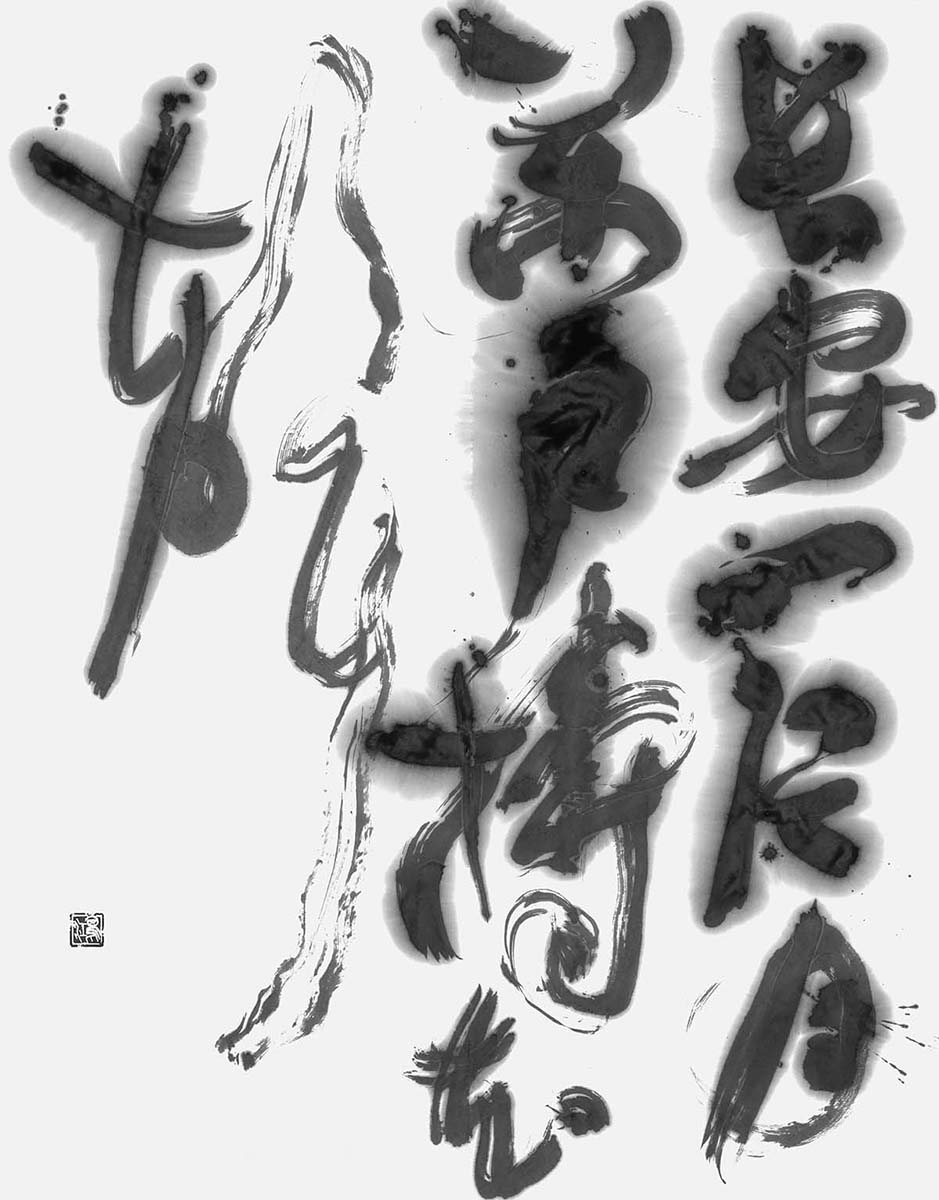 長安一片月
萬戸擣衣
声